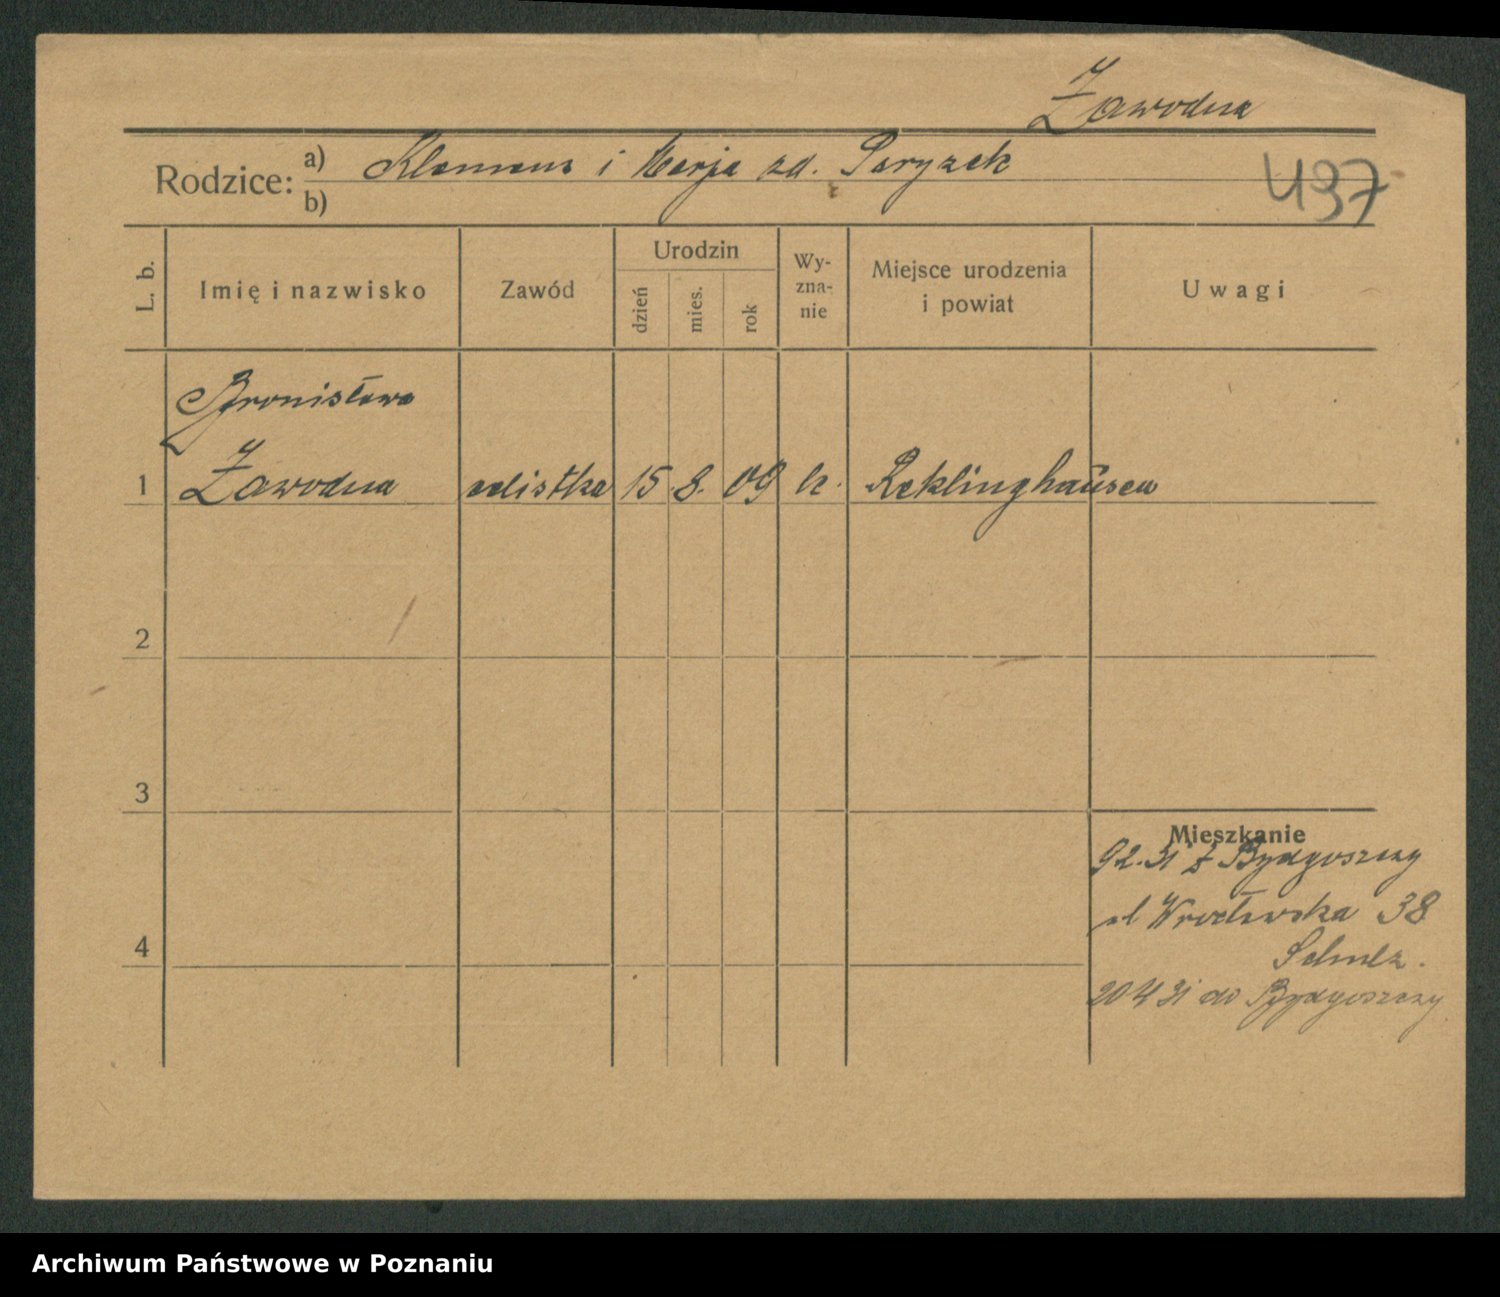 Zawodna
Rodzice: a) Klemens i Marja zd. Paryzek
b)
497
L. b.
Imię i nazwisko
Zawód
Urodzin
dzień
mies.
rok
Wy-
zna-
nie
Miejsce urodzenia
i powiat
Uwagi
Bronisława
1 Zawodna 15 8. 09 k. Reklinghausen
2
3
4
Mieszkanie
9 2. 31 z Bydgoszczy
ul Wrocławska 38
20 4 31 do Bydgoszczy
Archiwum Państwowe w Poznaniu